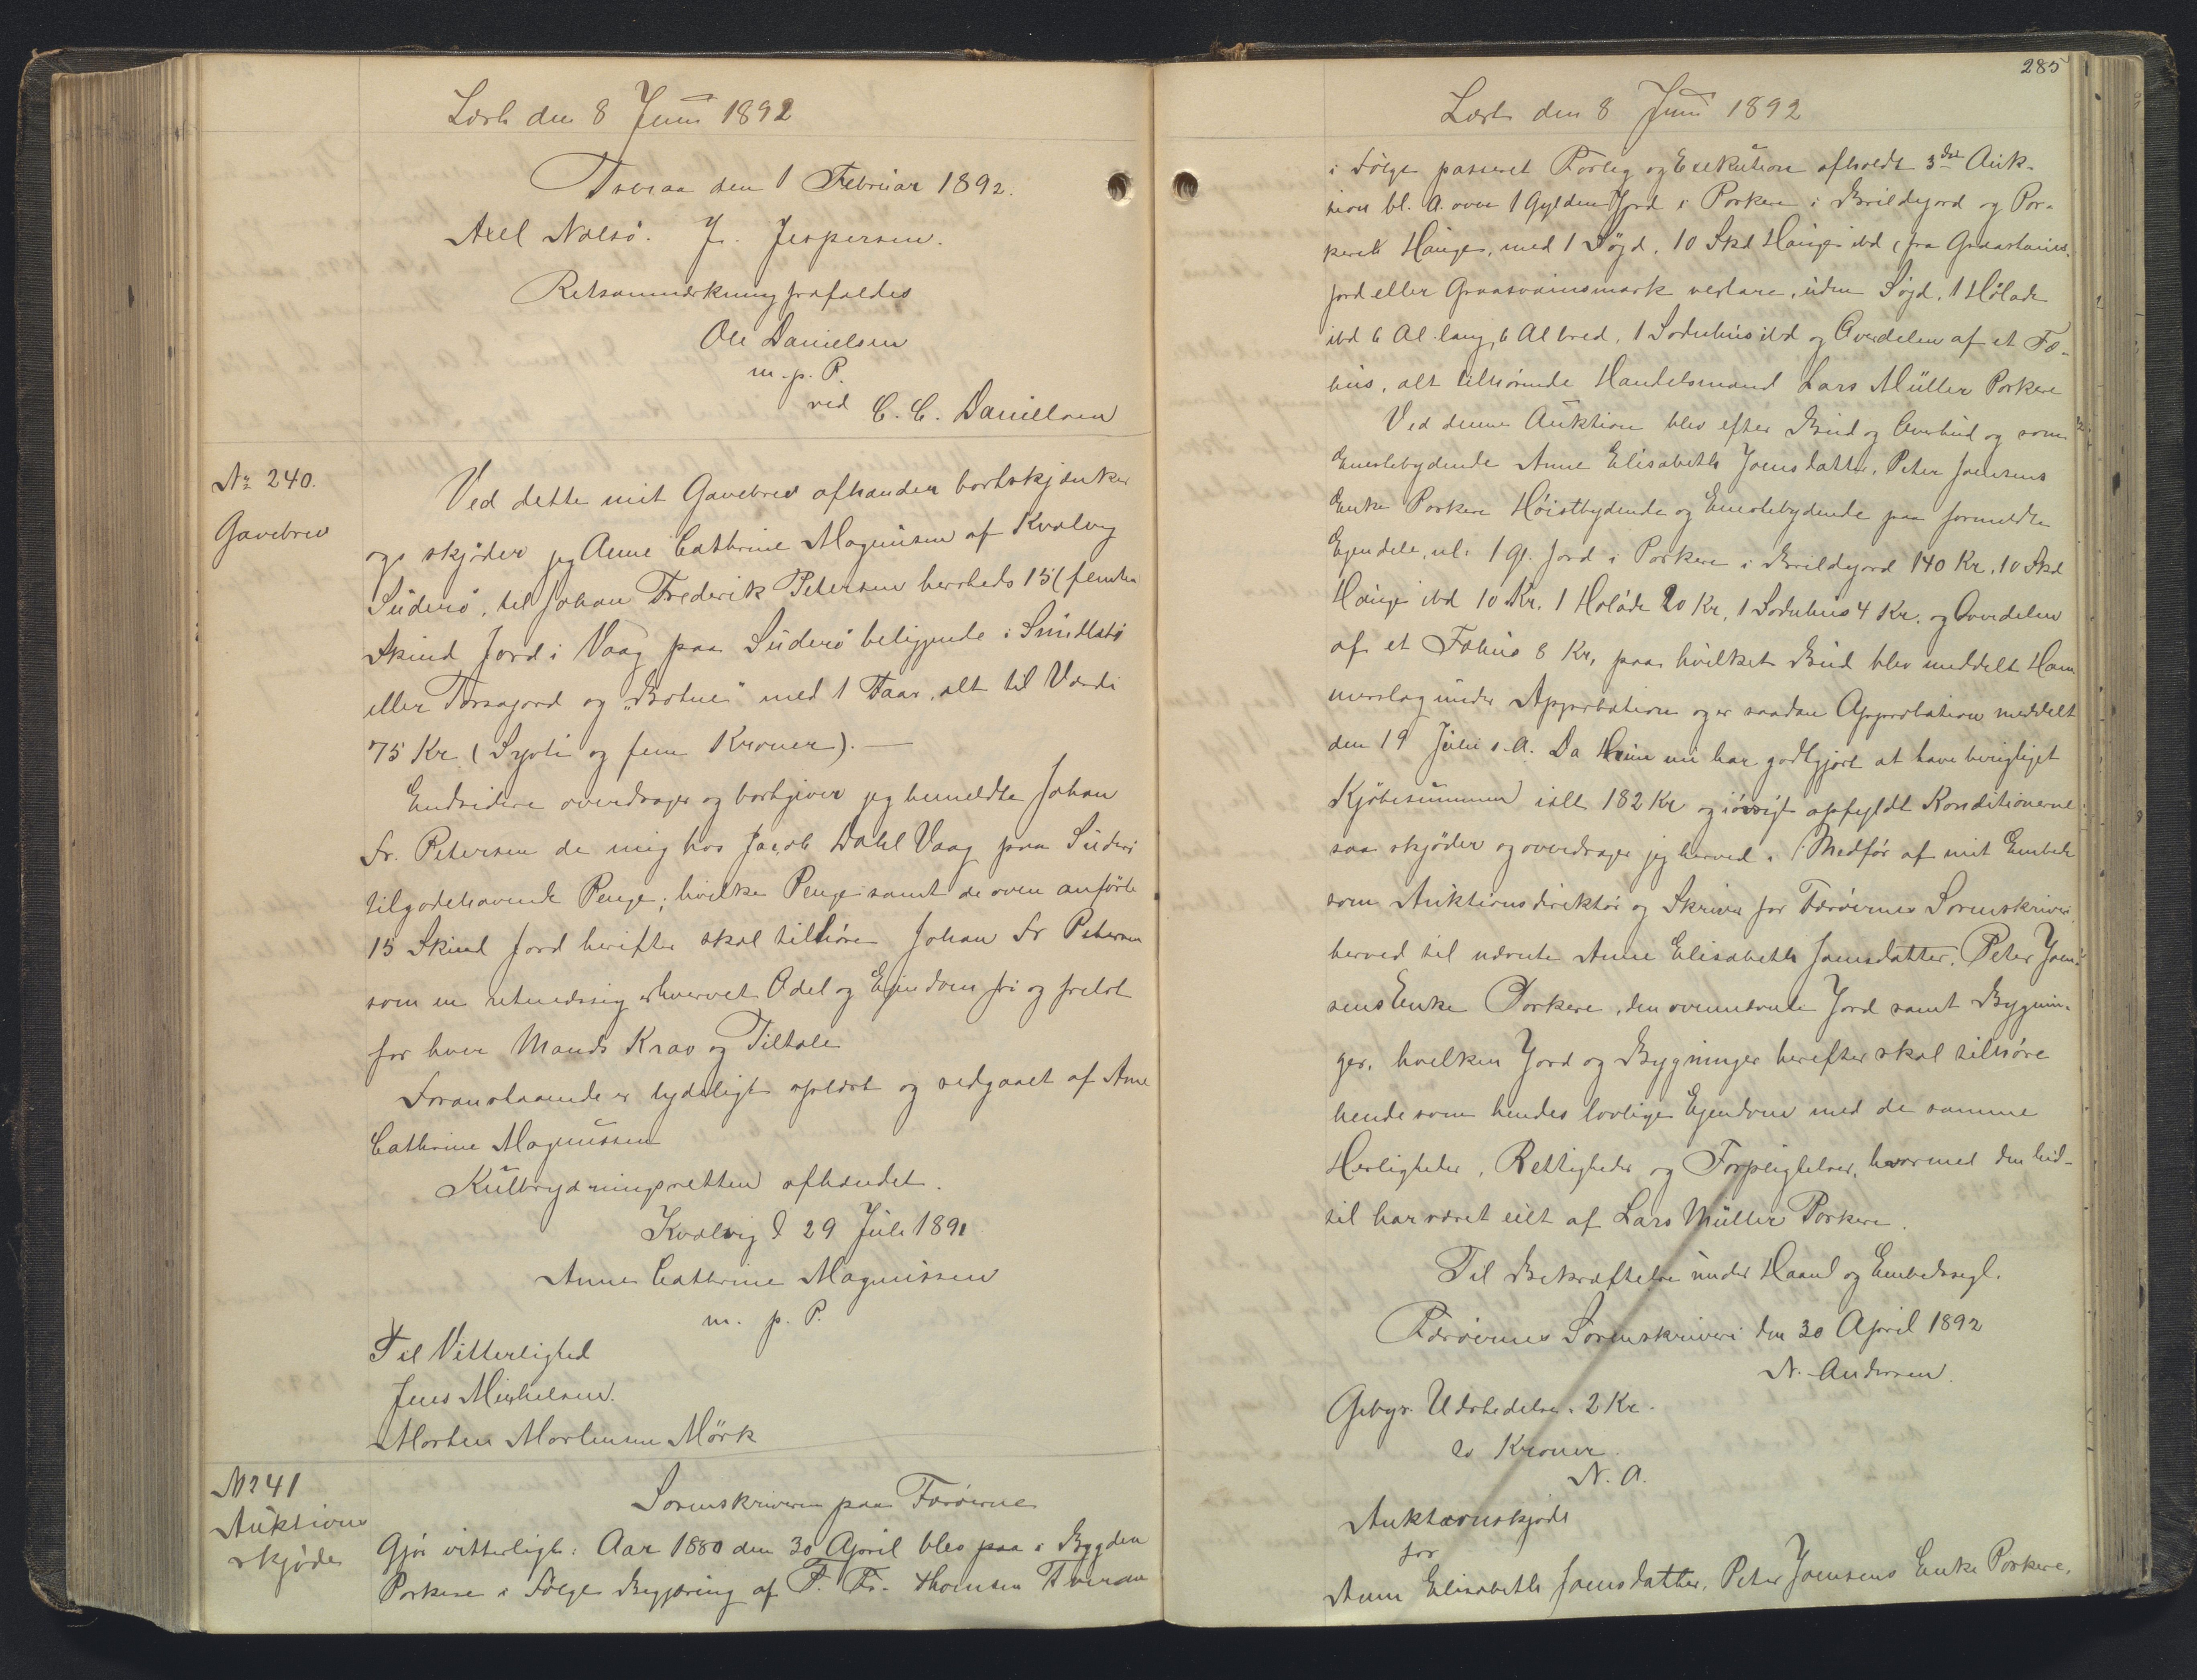 Læst den 8 Juni 1892
Tveraa den 1 Februar 1892.
Axel Nolsö. J. Jespersen.
Retsanmærkning frafaldes
Ole Danielsen
m. p. P.
ved C. C. Danielsen
No 240.
Gavebrev
Ved dette mit Gavebrev afhænder bortskjænker
og skjøder jeg Anne Cathrine Magnussen af Kvalvig
Suderö, til Johan Frederik Petersen hersteds 15 (femten
Skind Jord i Vaag paa Suderö beliggende i
eller Torsagord og "Botne" med 1 Faar, alt til Værdi
75 Kr. (Syvti og fem Kroner). —
Endvidere overdrager og bortgiver jeg bemeldte Johan
Fr. Petersen de mig hos Jacob Dahl Vaag paa Suderö
tilgodehavende Penge; hvilke Penge samt de oven anførte
15 Skind Jord herefter skal tilhøre Johan Fr Petersen
som en retmæssig erhvervet Odel og Ejendom fri og frelst
for hver Mands Krav og Tiltale
Foranstaaende er tydeligt oplæst og vedgaaet af Ane
Cathrine Magnussen
Kulbrydningsretten afhændet.
Kvalvig d 29 Juli 1891
Anne Cathrine Magnussen
m. p. P.
Til Vitterlighed
Jens Michelsen.
Morten Mortensen Mörk
No 241
Auktions
skjöde
Sorenskriveren paa Færöerne
Gjör vitterligt: Aar 1880 den 30 April blev paa i Bygden
Porkere i Fölge Begjæring af F. Fr. Thomsen Tveraa
285
Læst den 8 Juni 1892
i Fölge passeret Forlig og Exekution afholdt 3die Auk-
tion bl. A. over 1 Gylden Jord i Porkere i Brildegord og Por-
kere Hauge, med 1 Söjd, 10 Skd Hauge ibd (fra
jord eller Graasvainsmark vestare, uden Söjd, 1 Hölade
ibd 6 Al lang, 6 Al bred, 1 Soduhus ibd og Overdelen af et Fæ-
hus, alt tilhörende Handelsmand Lars Müller Porkere
Ved denne Auktion blev efter Bud og Overbud og som
Eenestebydende Anne Elisabeth Joensdatter, Peter Joensens
Enke Porkere Höistbydende og Enestebydende paa formeldte
Ejendele, nl. 1 Gl. Jord i Porkere i Brildegord 140 Kr, 10 Skd
Hauge ibd 10 Kr. 1 Holade 20 Kr, 1 Soduhus 4 Kr. og Overdelen
af et Fæhus 8 Kr, paa hvilket Bud blev meddelt Ham
merslag under Approbation og er saadan Approbation meddelt
den 19 Juli s. A. Da Hun nu har godtgjort at have berigtiget
Kjöbesummen ialt 182 Kr og iövrigt opfyldt Konditionerne
saa skjöder og overdrager jeg herved i Medför af mit Embede
som Auktionsdirektör og Skriver for Færöernes Sorenskriveri
herved til nævnte Anne Elisabeth Joensdatter, Peter Joen-
sens Enke Porkere, den ovennævnte Jord samt Bygnin-
ger, hvilken Jord og Bygninger herefter skal tilhöre
hende som hendes lovlige Ejendom med de samme
Herligheder, Rettigheder og Forpligtelser, hvormed den hid-
til har været eiet af Lars Müller Porkere.
Til Bekræftelse under Haand og Embedssegl.
Færöernes Sorenskriveri den 30 April 1892
N. Andersen.
Gebyr. Udstedelse. 2 Kr.
to Kroner.
N. A.
Auktionskjöde
for
Anne Elisabeth Joensdatter, Peter Joensens Enke Porkere.